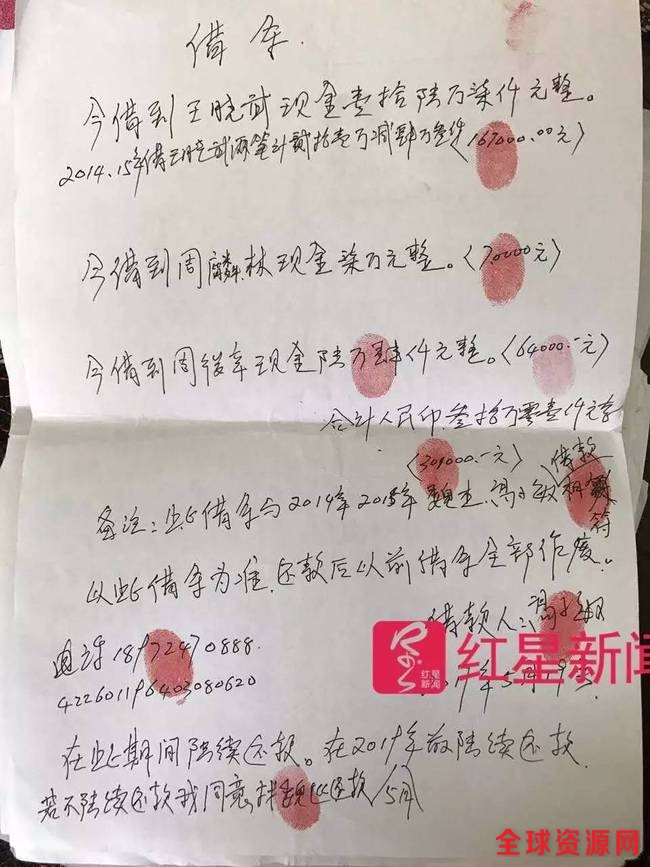 借条.
今借到王晓武现金壹拾陆万柒仟元整。
2014.15年借王晓武两笔计贰拾壹万减肆万叁仟（167000.00元）
今借到周麟林现金柒万元整。（70000元）
今借到周 现金陆万肆仟元整。（64000.-元）
合计人民币叁拾万零壹仟元
（301000.-元） 借款
备注：此借条与2014年2015年 相
符
以此借条为准，还款后以前借条全部作废。
借款人：冯
电话18972470888.
年5月19
422601196403080620
在此期间陆续还款。在2019年前陆续还款.
若不陆续还款我同意 还款 5月
红星新闻
红星
新闻
全球资源网